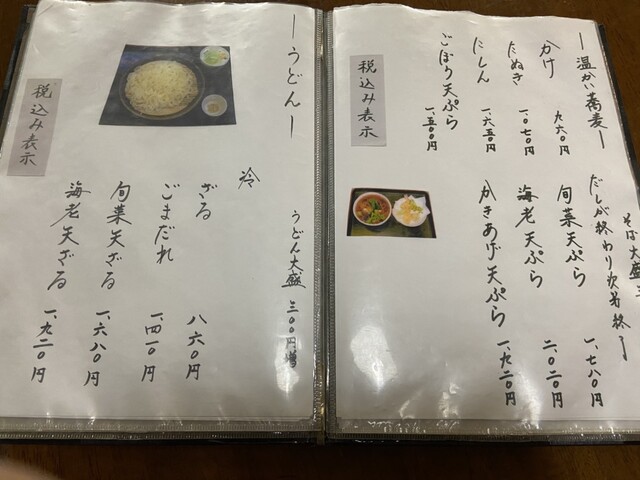 ―温かい蕎麦―
そば大盛
だしが終わり次第終了
かけ 九六〇円
たぬき 一、〇七〇円
にしん 一、六五〇円
ごぼう天ぷら 一、五〇〇円
税込み表示
旬菜天ぷら 一、七八〇円
海老天ぷら 二、〇二〇円
かきあげ天ぷら 一、九二〇円
―うどん―
うどん大盛 三〇〇円増
税込み表示
冷
ざる 八六〇円
ごまだれ 一、四一〇円
旬菜天ざる 一、六八〇円
海老天ざる 一、九二〇円